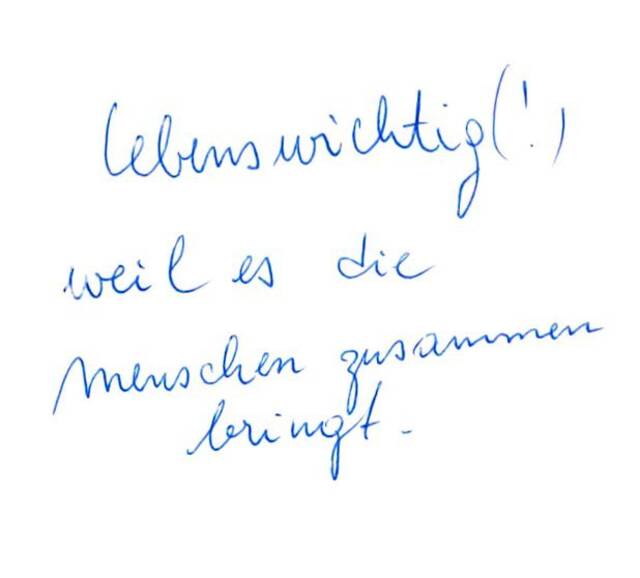 lebenswichtig(!)
weil es die
Menschen zusammen
bringt.